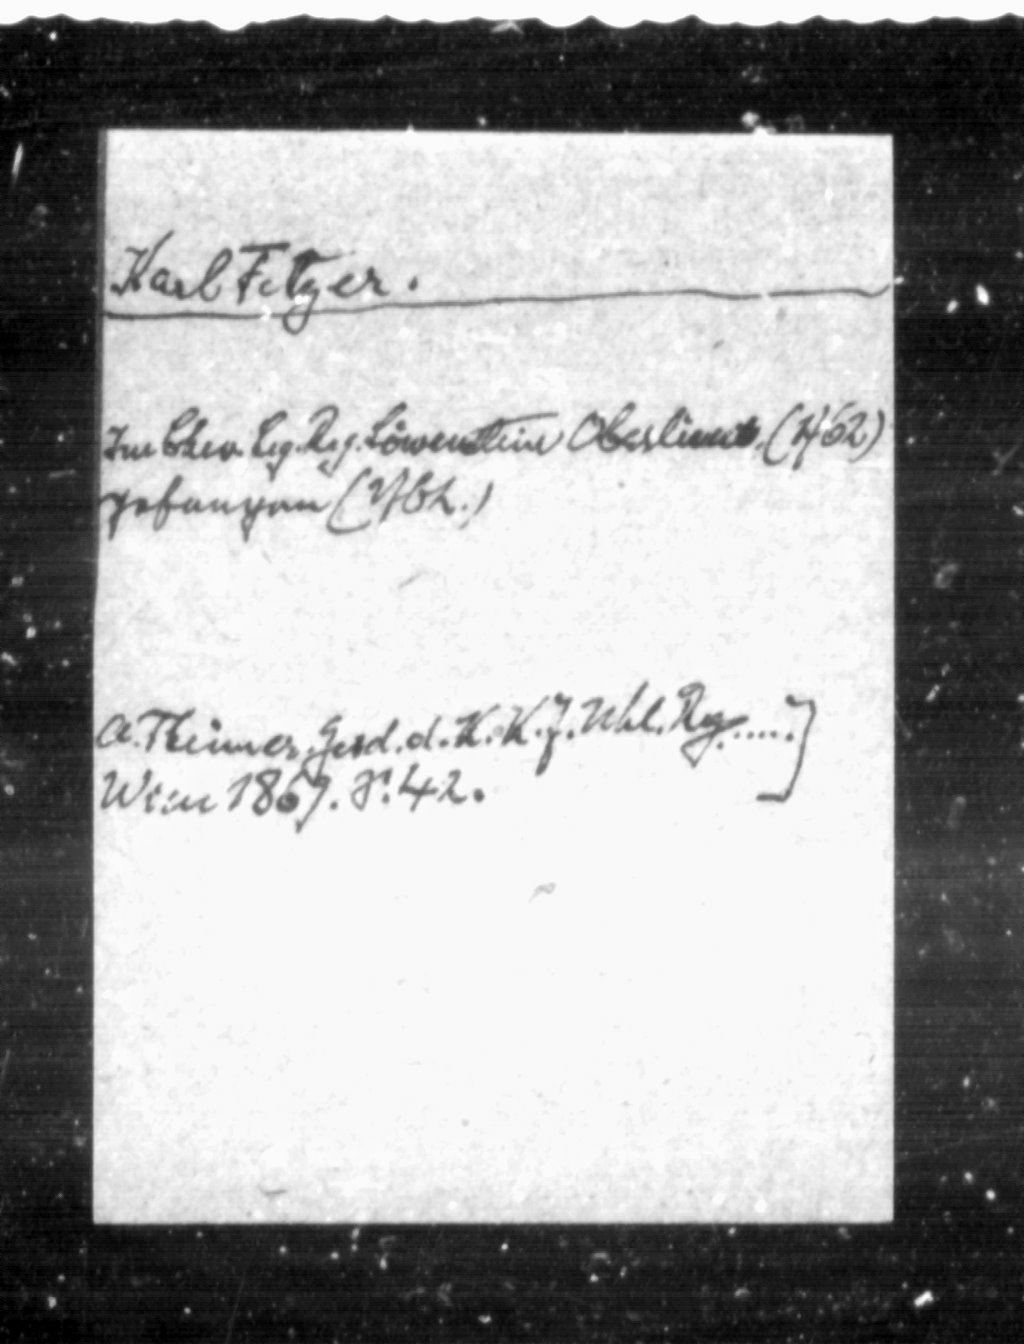 Karl Fetzer.
Im Chev. Leg. Reg. Löwenstein Oberlieut. (1762)
gefangen (1762.)
A. Theimer, Gesch. d. K. K. 7. Uhl. Reg.....]
Wien 1869. S. 42.